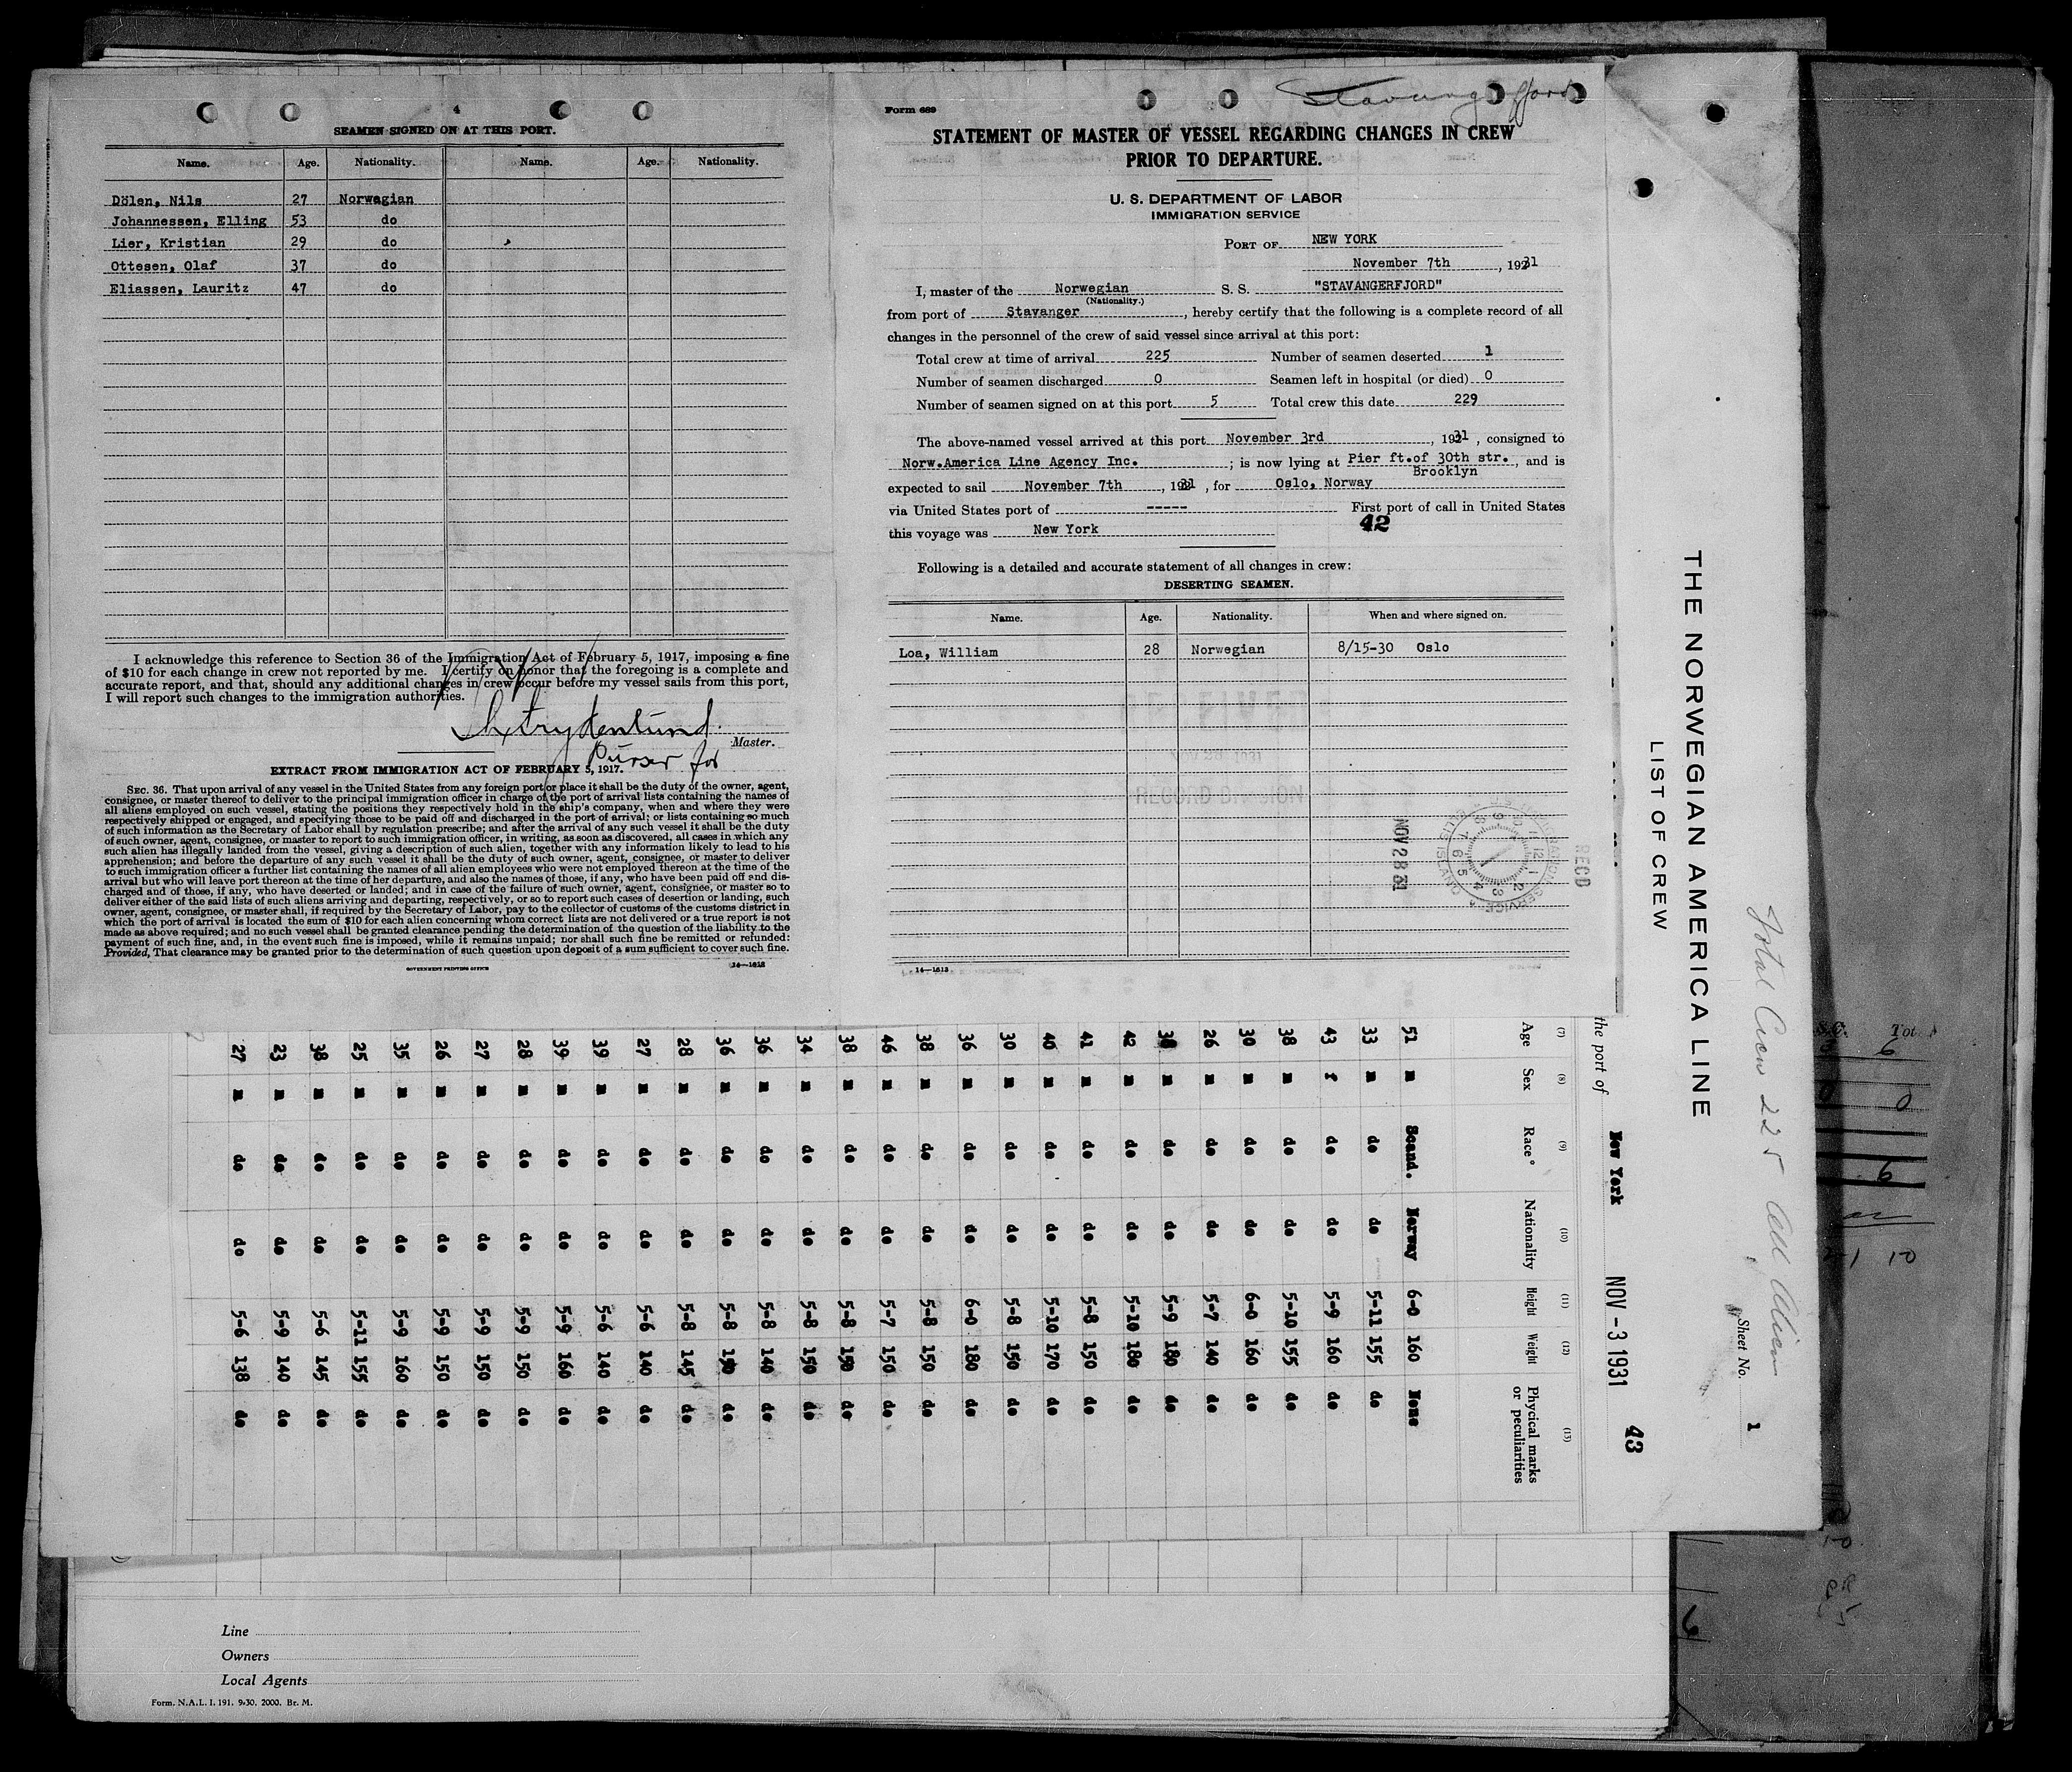 4
SEAMEN SIGNED ON AT THIS PORT.
Name. Age. Nationality. Name. Age. Nationality.
Dölen, Nils 27 Norwegian
Johannessen, Elling 53 do
Lier, Kristian 29 do
Ottesen, Olaf 37 do
Eliassen, Lauritz 47 do
I acknowledge this reference to Section 36 of the Immigration Act of February 5, 1917, imposing a fine
of $10 for each change in crew not reported by me. I certify on honor that the foregoing is a complete and
accurate report, and that, should any additional changes in crew occur before my vessel sails from this port,
I will report such changes to the immigration authorities.
Master.
Purser for
EXTRACT FROM IMMIGRATION ACT OF FEBRUARY 5, 1917.
SEC. 36. That upon arrival of any vessel in the United States from any foreign port or place it shall be the duty of the owner, agent,
consignee, or master thereof to deliver to the principal immigration officer in charge of the port of arrival lists containing the names of
all aliens employed on such vessel, stating the positions they respectively hold in the ship's company, when and where they were
respectively shipped or engaged, and specifying those to be paid off and discharged in the port of arrival; or lists containing so much
of such information as the Secretary of Labor shall by regulation prescribe; and after the arrival of any such vessel it shall be the duty
of such owner, agent, consignee, or master to report to such immigration officer, in writing, as soon as discovered, all cases in which any
such alien has illegally landed from the vessel, giving a description of such alien, together with any information likely to lead to his
apprehension; and before the departure of any such vessel it shall be the duty of such owner, agent, consignee, or master to deliver
to such immigration officer a further list containing the names of all alien employees who were not employed thereon at the time of the
arrival but who will leave port thereon at the time of her departure, and also the names of those, if any, who have been paid off and dis-
charged and of those, if any, who have deserted or landed; and in case of the failure of such owner, agent, consignee, or master so to
deliver either of the said lists of such aliens arriving and departing, respectively, or so to report such cases of desertion or landing, such
owner, agent, consignee, or master shall, if required by the Secretary of Labor, pay to the collector of customs of the customs district in
which the port of arrival is located the sum of $10 for each alien concerning whom correct lists are not delivered or a true report is not
made as above required; and no such vessel shall be granted clearance pending the determination of the question of the liability to the
payment of such fine, and, in the event such fine is imposed, while it remains unpaid; nor shall such fine be remitted or refunded:
Provided, That clearance may be granted prior to the determination of such question upon deposit of a sum sufficient to cover such fine.
GOVERNMENT PRINTING OFFICE 14—1613
Form 689
Stavangerfjord
STATEMENT OF MASTER OF VESSEL REGARDING CHANGES IN CREW
PRIOR TO DEPARTURE.
U. S. DEPARTMENT OF LABOR
IMMIGRATION SERVICE
PORT OF NEW YORK
November 7th, 1931
I, master of the Norwegian S. S. "STAVANGERFJORD"
(Nationality.)
from port of Stavanger, hereby certify that the following is a complete record of all
changes in the personnel of the crew of said vessel since arrival at this port:
Total crew at time of arrival 225 Number of seamen deserted 1
Number of seamen discharged 0 Seamen left in hospital (or died) 0
Number of seamen signed on at this port 5 Total crew this date 229
The above-named vessel arrived at this port November 3rd, 1931, consigned to
Norw.America Line Agency Inc.; is now lying at Pier ft.of 30th str., and is
Brooklyn
expected to sail November 7th, 1931, for Oslo, Norway
via United States port of ----- First port of call in United States
this voyage was New York 42
Following is a detailed and accurate statement of all changes in crew:
DESERTING SEAMEN.
Name. Age. Nationality. When and where signed on.
Loa, William 28 Norwegian 8/15-30 Oslo
RECORD DIVISION
NOV 28 31
RECD
14—1613
THE NORWEGIAN AMERICA LINE
LIST OF CREW
Total Crew 225 All Aliens
Sheet No. 1
the port of New York NOV - 3 1931 43
(7) (8) (9) (10) (11) (12) (13)
Age Sex Race Nationality Height Weight Physical marks or peculiarities
51 m Scand. Norway 6-0 160 None
33 m do do 5-11 155 do
43 f do do 5-9 160 do
38 m do do 5-10 155 do
30 m do do 6-0 160 do
26 m do do 5-7 140 do
m do do 5-9 180 do
42 m do do 5-10 180 do
41 m do do 5-8 150 do
40 m do do 5-10 170 do
30 m do do 5-8 150 do
36 m do do 6-0 180 do
38 m do do 5-8 150 do
46 m do do 5-7 150 do
38 m do do 5-8 150 do
34 m do do 5-8 150 do
36 m do do 5-8 140 do
36 m do do 5-8 150 do
28 m do do 5-8 145 do
27 m do do 5-6 140 do
39 m do do 5-6 140 do
39 m do do 5-9 160 do
28 m do do 5-9 150 do
27 m do do 5-9 150 do
26 m do do 5-9 150 do
35 m do do 5-9 160 do
25 m do do 5-11 155 do
38 m do do 5-6 145 do
23 m do do 5-9 140 do
27 m do do 5-6 138 do
Line
Owners
Local Agents
Form. N.A.L. I. 191. 9-30. 2000. Br. M.